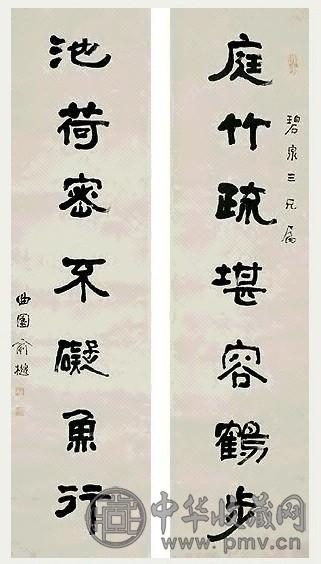 庭竹疏堪容鶴步
碧泉三兄屬
池荷密不礙魚行
曲園俞樾
中华收藏网
www.pmv.cn